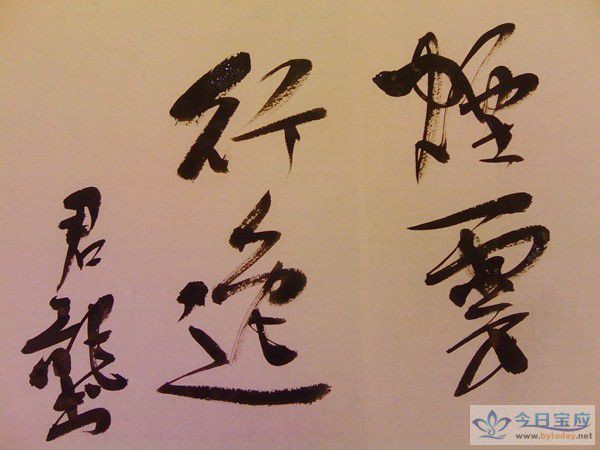 煙雲
行逸
君龔
今日宝应
www.bytoday.net